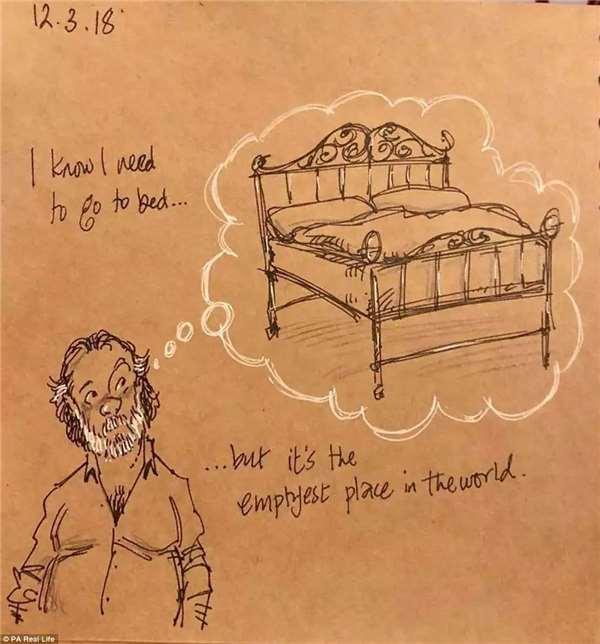 12.3.18
I know I need
to go to bed...
...but it's the
emptyest place in the world.
© PA Real Life